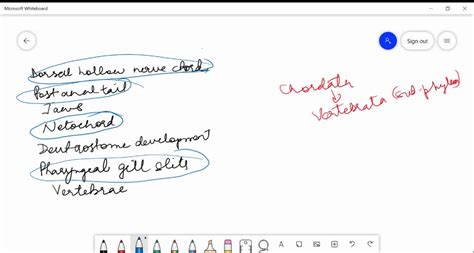 Microsoft Whiteboard
Sign out
Dorsal hollow nerve chord
Post anal tail
Jaws
Netochord
Deutrostome development
Pharyngeal gill slits
Vertebrae
Chordata
Vertebrata (Sub-phylum)